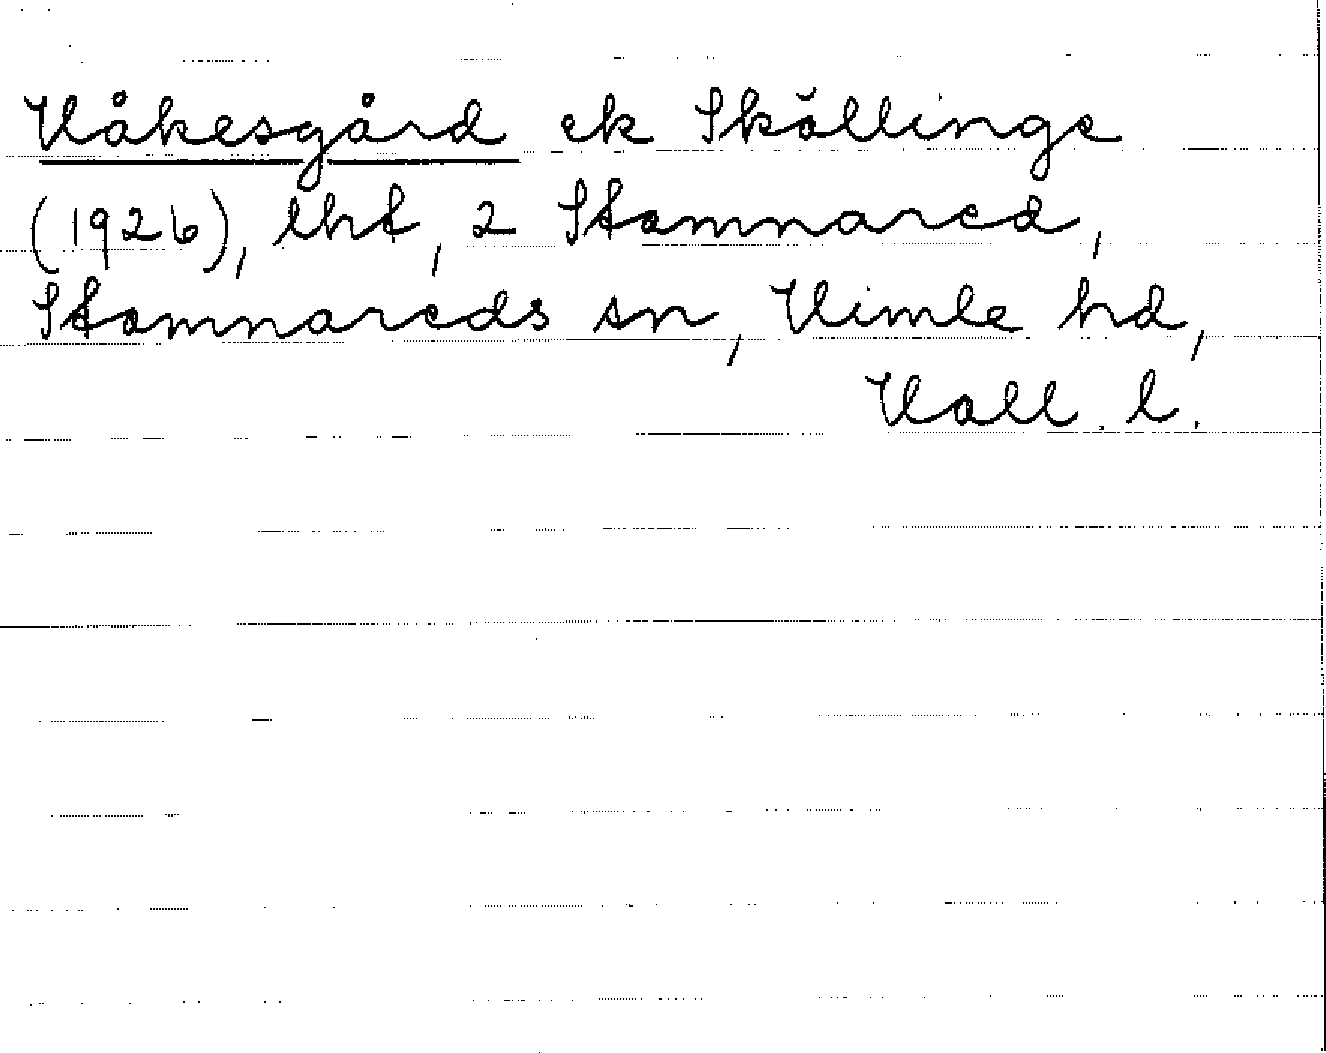 Håkesgård ek Skällinge
(1926), lht, 2 Stamnared,
Stamnareds sn, Himle hd,
Hall. l.